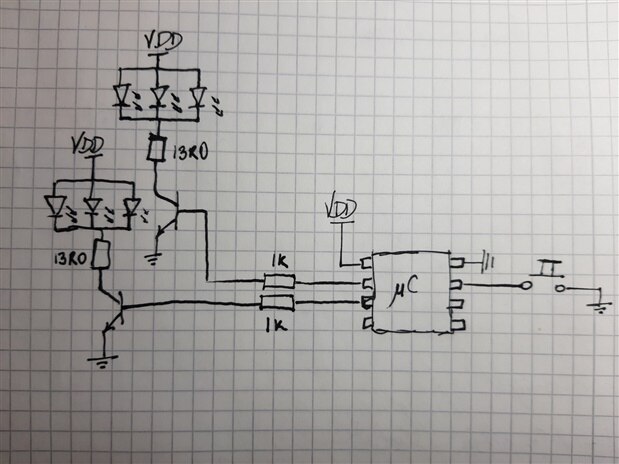 VDD
13R0
VDD
13R0
VDD
1K
1K
μC